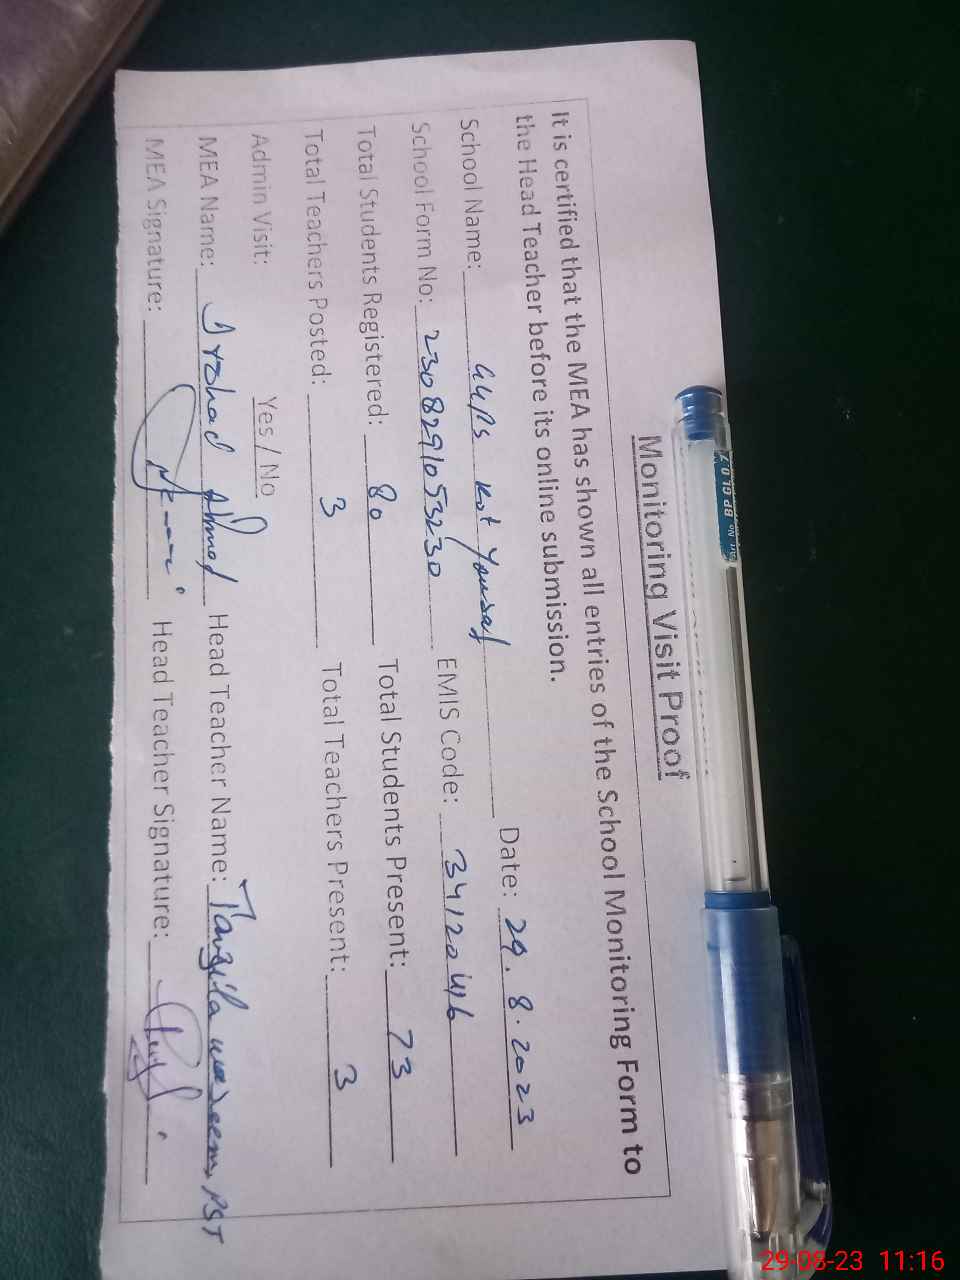 Monitoring Visit Proof
It is certified that the MEA has shown all entries of the School Monitoring Form to
the Head Teacher before its online submission.
School Name: GGPS Kot Yousaf Date: 29.8.2023
School Form No: 2308291053230 EMIS Code: 34120446
Total Students Registered: 80 Total Students Present: 73
Total Teachers Posted: 3 Total Teachers Present: 3
Admin Visit: Yes / No
MEA Name: Irshad Ahmed Head Teacher Name: Tanzila waseem, PST
MEA Signature: Head Teacher Signature:
29-08-23 11:16